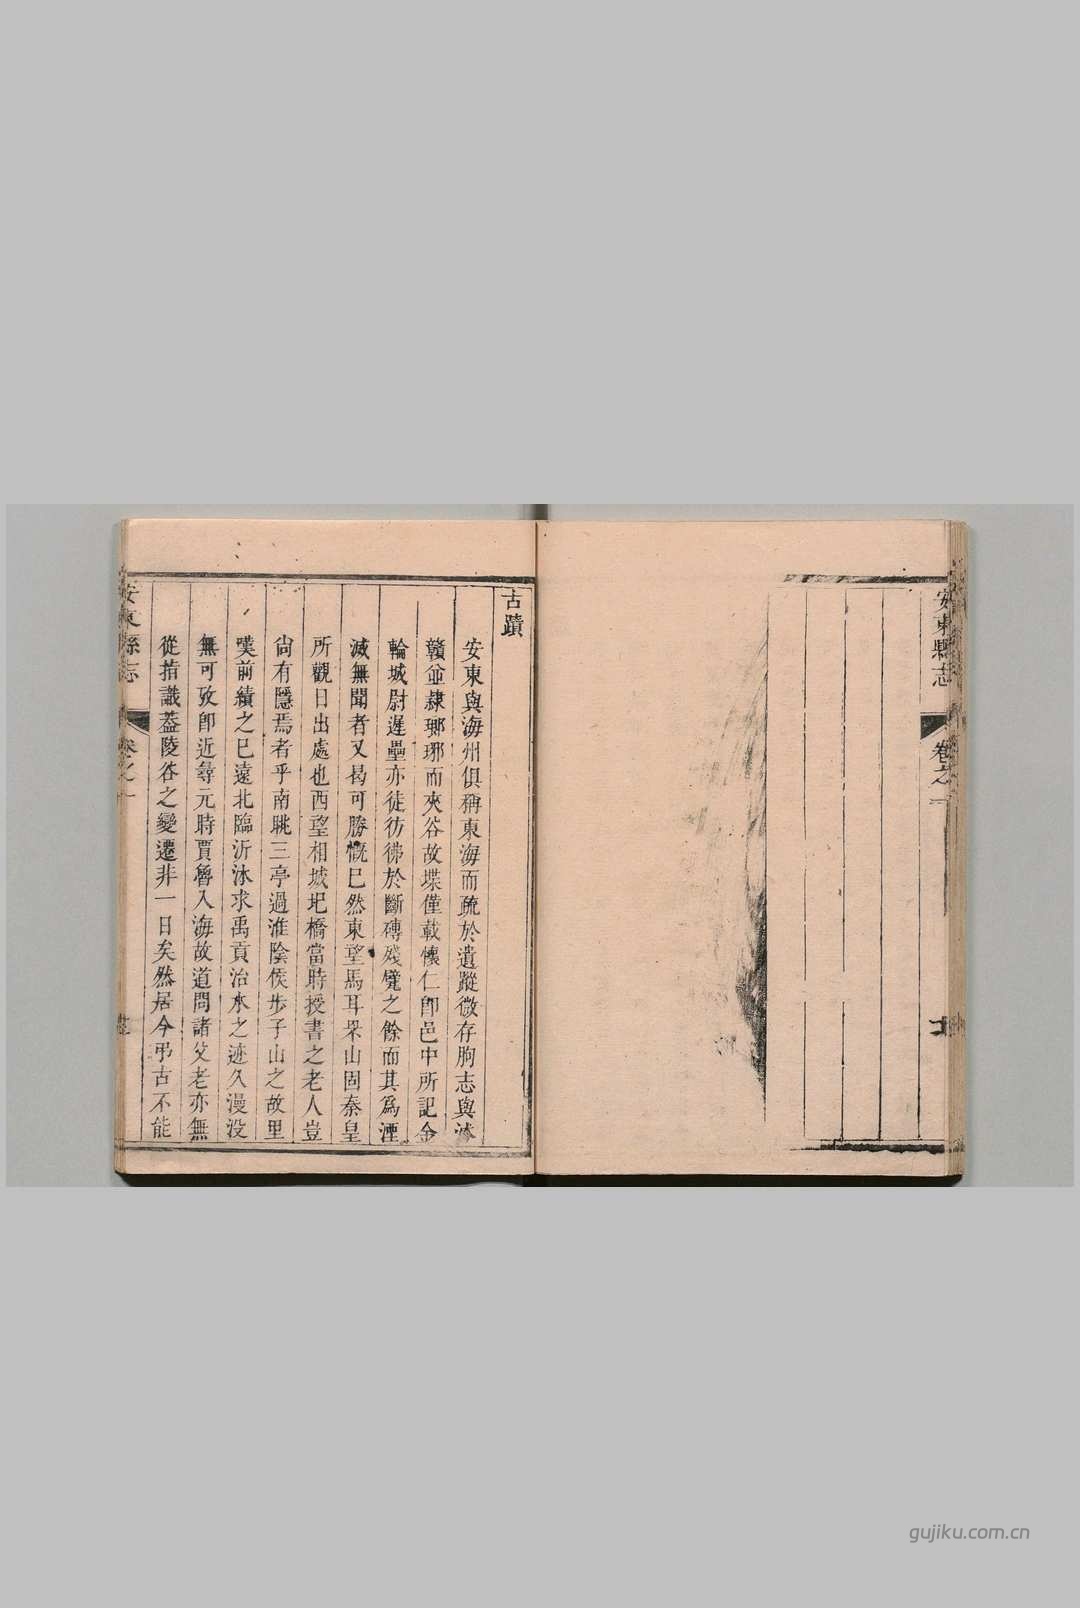 安東縣志
卷之一
古蹟
安東與海州俱稱東海而疏於遺蹤微存朐志與沭
贛並隷瑯琊而夾谷故堞僅載懷仁卽邑中所記金
輪城尉遲壘亦徒彷彿於斷磚殘甓之餘而其爲湮
滅無聞者又曷可勝慨已然東望馬耳朶山固秦皇
所觀日出處也西望相城圯橋當時授書之老人豈
尙有隱焉者乎南眺三亭過淮陰侯步子山之故里
嘆前績之已遠北臨沂沭求禹貢治水之迹久漫没
無可攷卽近尋元時賈魯入海故道問諸父老亦無
從指識葢陵谷之變遷非一日矣然居今弔古不能
安東縣志
卷之一
gujiku.com.cn